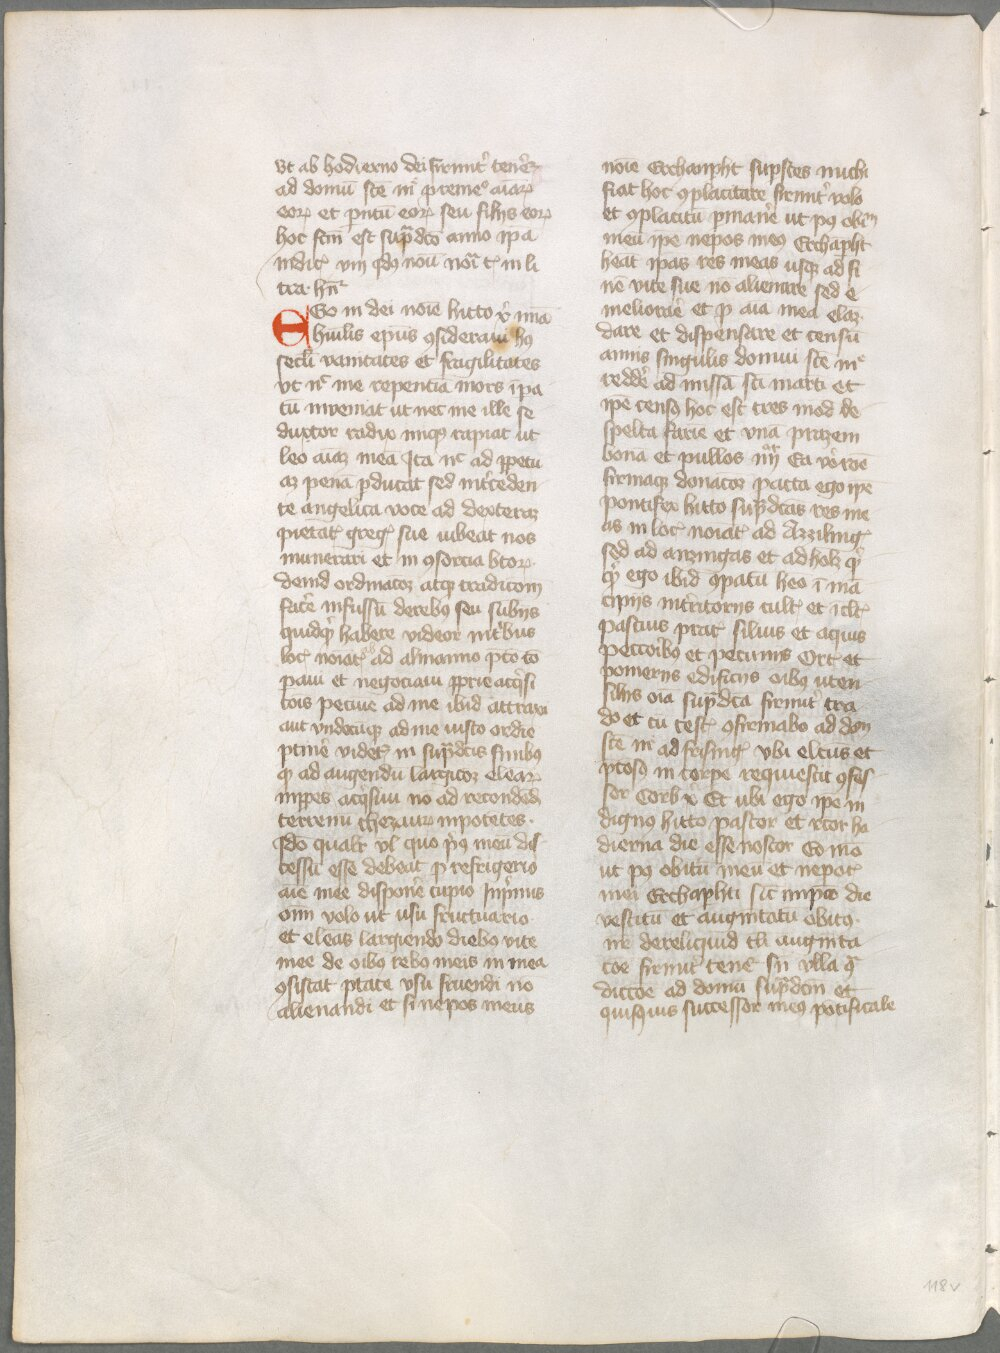 vt ab hodierno dei firmit̉ teneꝛ̄
ad domū sc̄e mͥ preme⁹ aīarꝫ
eorꝫ et pn̄tū eorꝫ seu filijs eorꝫ
hoc fc̄m est sup̄dc̄o anno ip̄a
indic̄ viij
tra hn̄ᶜ
Ego in dei noīe hitto v̉ inia
huīlis ep̄us ꝯsideraui hꝰ
secl̄i vanitates et fragilitates
vt nͨ me repentīa mors īpa
tū inveniat ut nec me ille se
ductor radix iniqꝰ rapiat ut
leo aīaꝫ meā Ita nͨ ad ꝑpetu
aꝫ penā ꝑducat sed int̉ceden
te angelica voce ad dexteraꝫ
pietat̄ greḡ sue iubeat nos
munerari et in ꝯsorcia bt̄orꝫ
deind ordinatoꝫ atqꝫ tradic̄om̄
fac̉e infussū de rebꝰ seu subijs
quidq̉ habere videor int̉bus
loc̄ noīat̄ ad almanno
paui et negociaui ꝓprie acq̉si
tōis pecuie ad me ibid attraxi
aut vndecūqꝫ ad me iusto ordīe
ptin̉e videt̄ in sup̄dc̄is finibꝰ
qͥ ad augendū largitoꝫ elearꝫ
inp̄pes acq̉siui nō ad recondēd
terrenū thezaurꝫ inpotētes
qdō qualr̄ vl̄ quo p̉ꝰ meū dis
cessū esse debeat ꝑ refrigerio
aīe mee dispon̉e cupio Inp̉mus
om̄i volo ut usu fructuario
et eleās largiendo diebꝰ vite
mee de oībꝰ rebꝰ meis in mea
ꝯsistat ptāte vsu fruendi nō
alienandi et si nepos meus
noīe Erchanpht supstes michi
fiat hoc ꝯplacitare firmit̉ volo
et ꝯplacitū pman̉e ut pꝰ obitū
meū ip̄e nepos meꝰ Erchapht
heāt ip̄as res meas usqꝫ ad fi
nē vite sue nō alienare sed ē
meliorar̉e et ꝑ aīa mea elaꝫ
dare et dispensare et censū
annis singulis domui sc̄e mͥᵉ
redd̉e ad missā sc̄i marti et
ip̄e censꝰ hoc est tres mod de
spelta farre et vnā
bonā et pullos iiijᵒʳ Ea v̉o rōe
firmaqꝫ donacōꝫ pacta ego ip̄e
pontifex hitto sup̄dc̄as res me
as in loc̄ noīat̄ ad Azzilinḡ
sed ad anzingas et ad holz q̉
q̉ ego ibid ꝯpatū heo ī mā
cipijs int̉ritorijs cult̄ et īclt̄
pascuis prat̄ siluis et aquis
peccoribꝰ et pecunijs Ort̄ et
pomerijs edificijs oībꝰ uten
silijs oīa sup̄dc̄a firmit̉ tra
do et cū test̄ ꝯfirmabo ad dom̄
sc̄e mͥ ad frisinḡ vbi elctus et
p̄tosꝰ in corpe requiescit ꝯfes
sor Corb v̉ Et ubi ego ip̄e in
dignꝰ hitto pastor et rc̄or ho
dierna die esse noscor Eo mō
ut pꝰ obitū meū et nepot̄
mei Erchaphti sic̄ inp̄co die
vestitū et augmtatū obitꝰ
me dereliquid tl̄i augmta
cōe firmit̉ ten̄e sn̄ vlla q̄
dictōe ad domū sup̄dc̄m et
quisquis successor meꝰ pōtificale